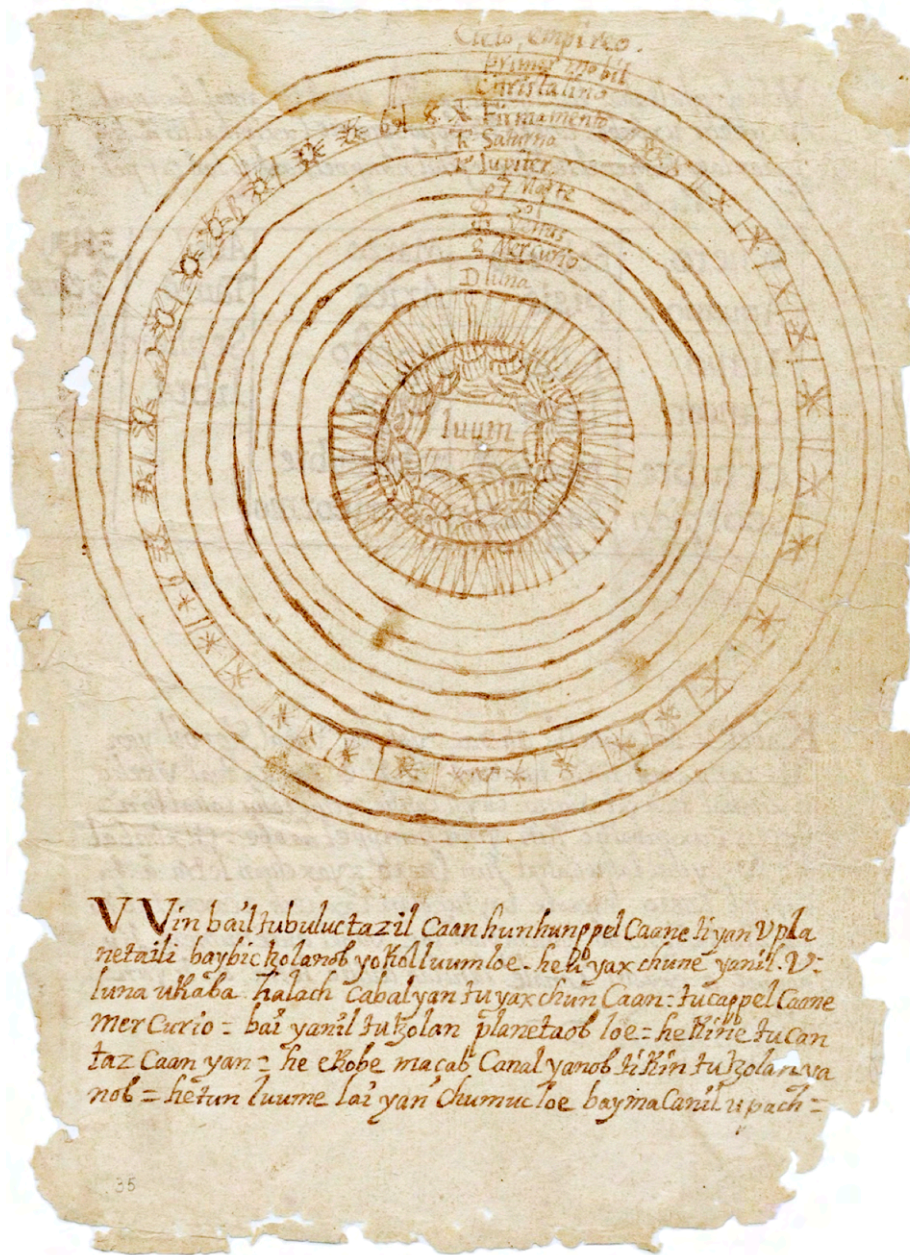 Cielo, empireo.
primer mobil
Christalino
Firmamento
♄ Saturno
♃ Jupiter
♂ Marte
Sol
♀ Venus
☿ Mercurio
D luna
luum
V Vin bail tubuluc tazil Caan hunhunppel Caane ti yan V pla
netaili baybic ꜩolanob yokol luum loe - heli yax chune yanil. V-
luna ukaba. halach cabal yan tu yax chun Caan = tucappel Caane
Mer Curio = bai yanil tu ꜩolan planetaob loe = he kine tu can
taz Caan yan = he ekobe maçab Canal yanob ti kin tu ꜩolan ya
nob = hetun luume lai yan chumuc loe bay ma Canil u pach =
35